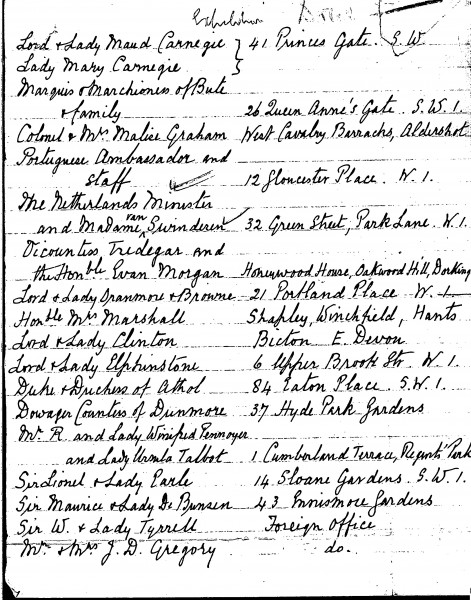 Exhibition
Lord & Lady Maud Carnegie } 41 Princes Gate. S.W.
Lady Mary Carnegie }
Marquis & Marchioness of Bute
& family 26 Queen Anne's Gate S.W.1.
Colonel & Mrs Malise Graham West Cavalry Barrachs, Aldershot
Portuguese Ambassador and
Staff 12 Gloucester Place. W.1.
The Netherlands Minister
and Madame van Swinderen 32 Green Street, Park Lane. W.1
Vicountess Tredegar and
the Honble Evan Morgan Honeywood House, Oakwood Hill, Dorking
Lord & Lady Oranmore & Browne 21 Portland Place W.1
Honble Mrs Marshall Shapley, Winchfield, Hants
Lord & Lady Clinton Bicton E. Devon
Lord & Lady Elphinstone 6 Upper Brook Str. W.1
Duke & Duchess of Athol 84 Eaton Place. S.W.1.
Dowager Countess of Dunmore 37 Hyde Park Gardens
Mr. R. and Lady Winifred Pennoyer
and Lady Ursula Talbot 1 Cumberland Terrace, Regents Park
Sir Lionel & Lady Earle 14 Sloane Gardens. S.W.1.
Sir Maurice & Lady De Bunsen 43 Ennismore Gardens
Sir W. & Lady Tyrrell Foreign Office
Mr. & Mrs J. D. Gregory do.